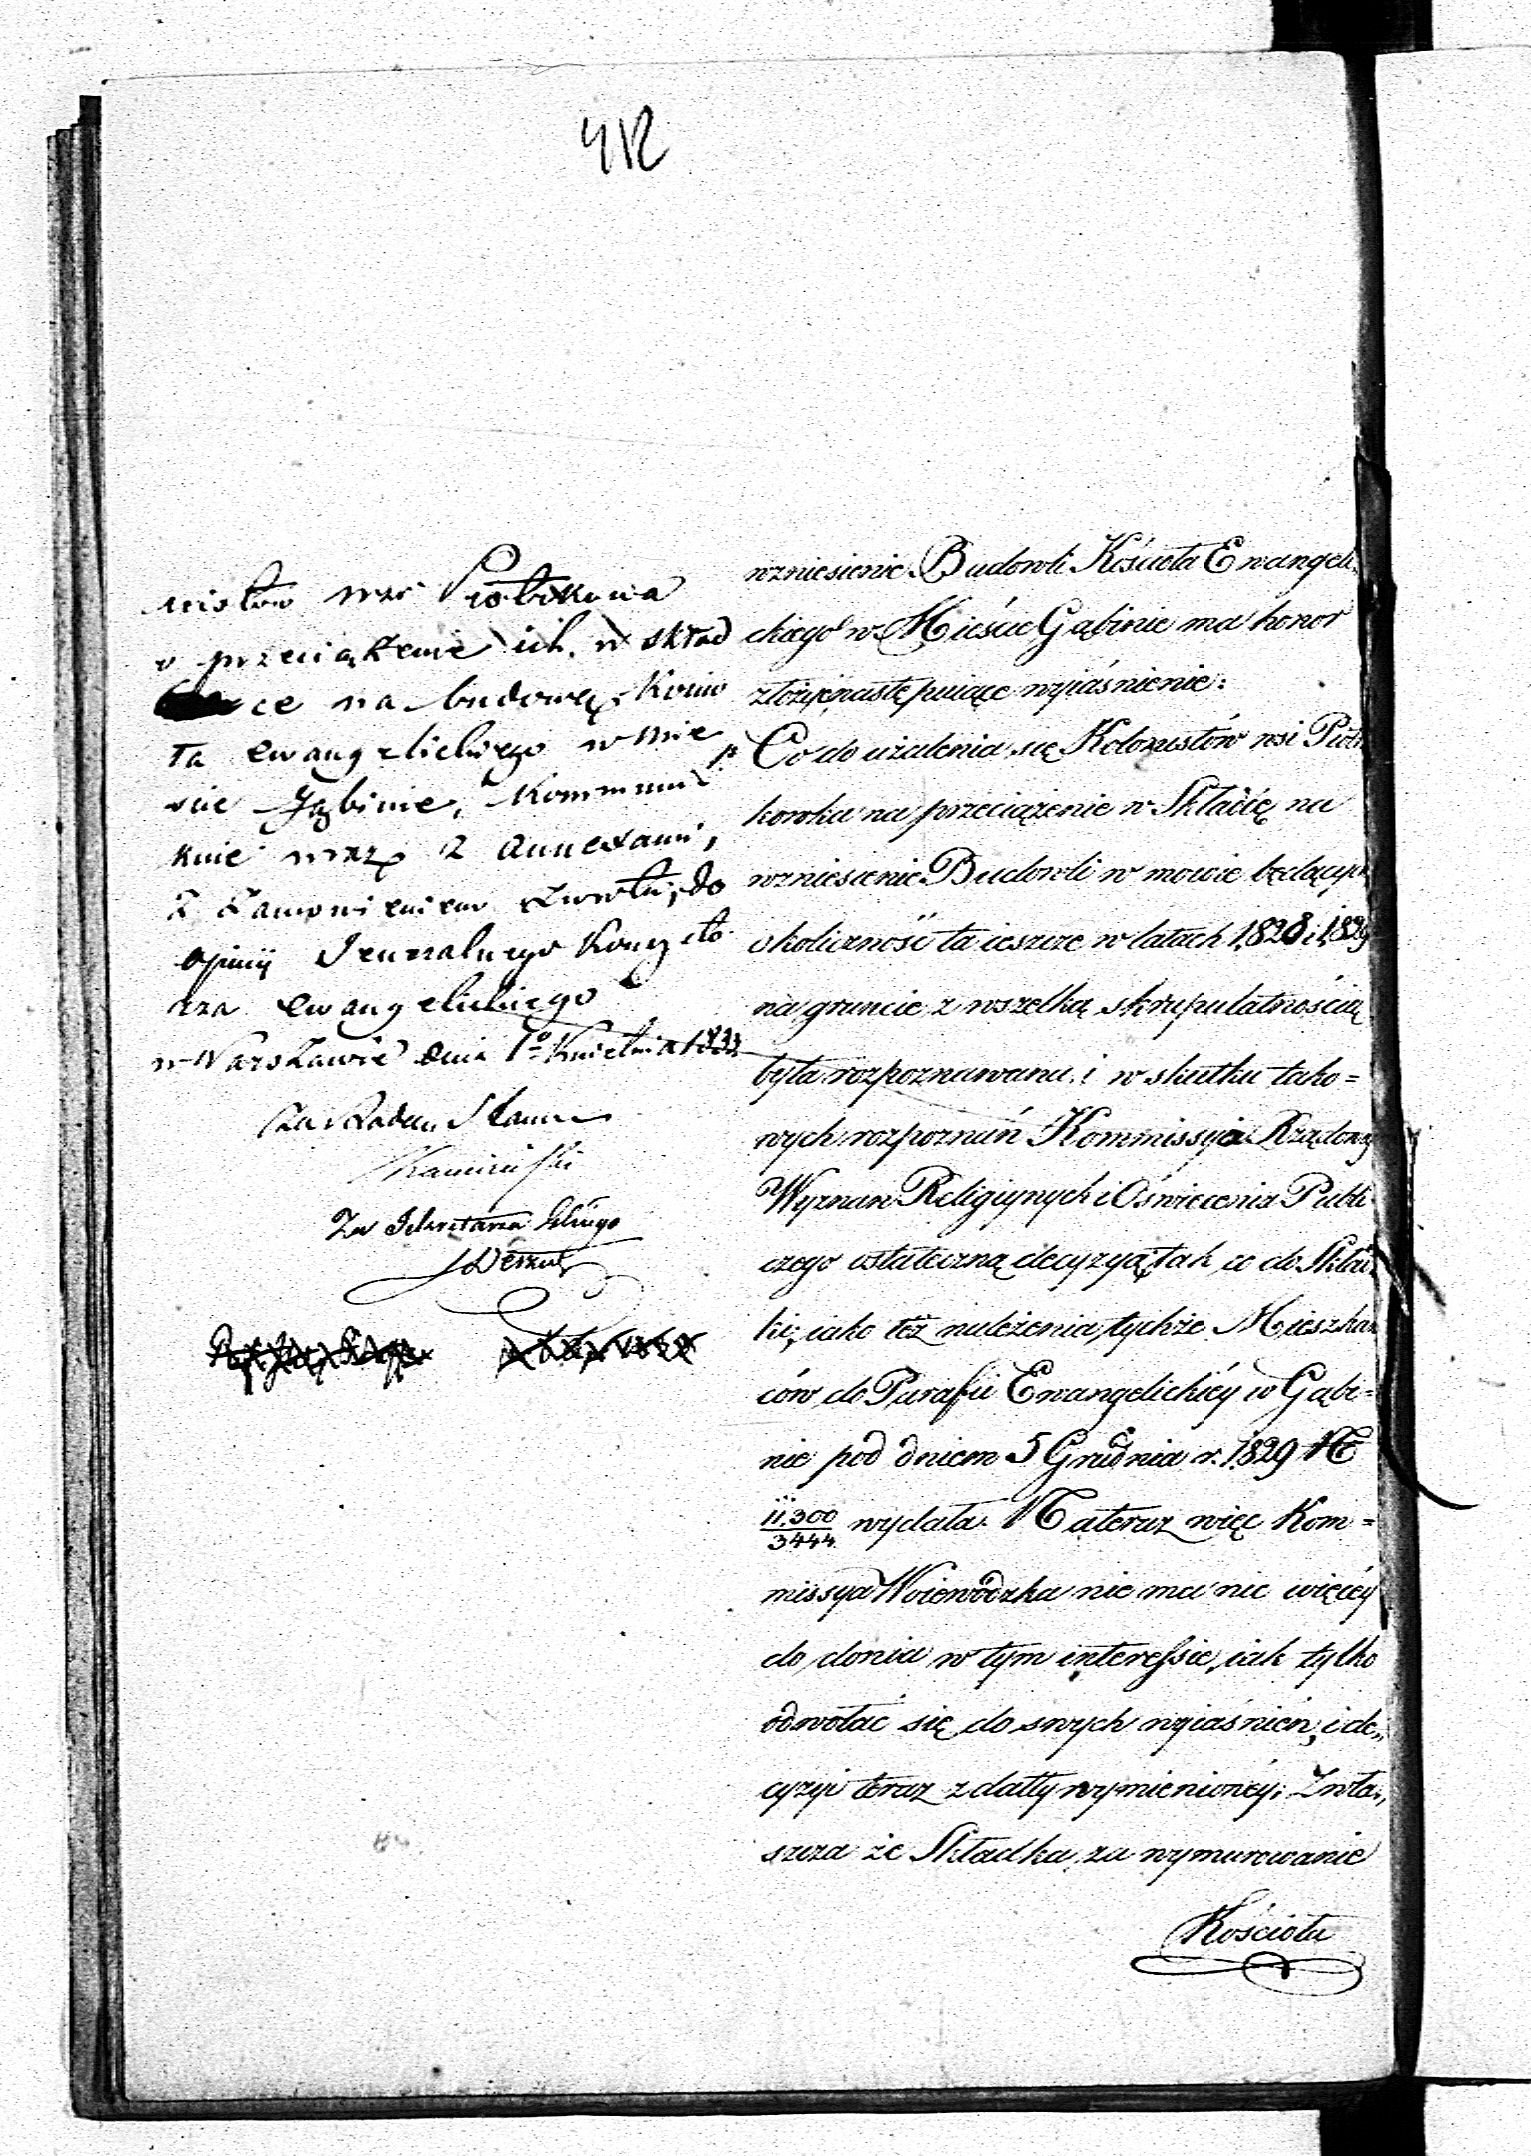 412
nistów wsi Piotrkowa
o przeciążenie ich w skład
ce na budowę Kościo
ła ewangelickiego w mie
ście Gąbinie, kommuni
kuie wraz z annexami,
z zamówieniem zwrotu, do
opinii Jeneralnego Konsysto
rza ewangelickiego
w Warszawie dnia 1o Kwietnia 1833
Za Radcę Stanu
Kamiński
Za Sekretarza Jlnego
wzniesienie Budowli Kościoła Ewangeli
ckiego w Mieście Gąbinie ma honor
złożyć następuiące wyiaśnienie:
Co do użalenia się Kolonistów wsi Piotr
kowka na przeciążenie w Składce na
wzniesienie Budowli w mowie będącey,
okoliczność ta ieszcze w latach 1828 i 1829
na gruncie z wszelką skrupulatnością
była rozpoznawana i w skutku tako=
wych rozpoznań Kommissya Rządowa
Wyznań Religiynych i Oświecenia Publi
cznego ostateczną decyzyą tak co do Skład
ki, iako też należenia tychże Mieszkań
ców do Parafii Ewangelickiéy w Gąbi=
nie pod dniem 5 Grudnia r. 1829 No
11.300/3444 wydała. Na teraz więc Kom=
missya Woiewódzka nie ma nic więcéy
do donia w tym interessie, iak tylko
odwołać się do swych wyiaśnień, i de„
cyzyi teraz z datty wymienionéy; Zwła„
szcza że Składka za wymurowanie
Kościoła